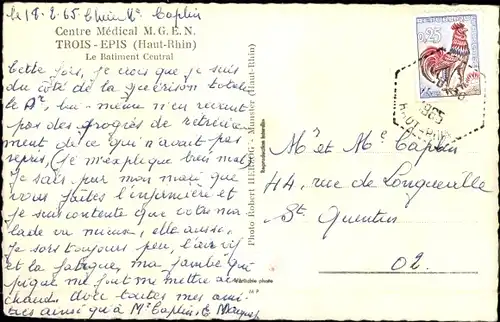 le 18.2.65. Chère Me Caplin
Centre Médical M. G. E. N.
TROIS - EPIS (Haut-Rhin)
Le Batiment Central
Cette fois, je crois que je suis
du côté de la guérison totale
le Dr, lui-même n'en revient
pas des progrès de
ment de ce qui n'avait pas
repris, (je m'explique bien mal
Je sais par mon mari que
vous faites l'infirmière et
je suis contente que votre ma
lade va mieux, elle aussi.
Je sors toujours peu, l'air vif
et la fatigue, ma jambe qui
pique me font me mettre au
chaud. Avec toutes mes ami
tiés ainsi qu'à Mr Caplin,
Photo Robert HERZOG - Munster (Haut-Rhin)
Reproduction interdite
Véritable photo
0,25
1965
HAUT-RHIN
Mr et Me Caplin
44, rue de Longueville
St. Quentin
02.